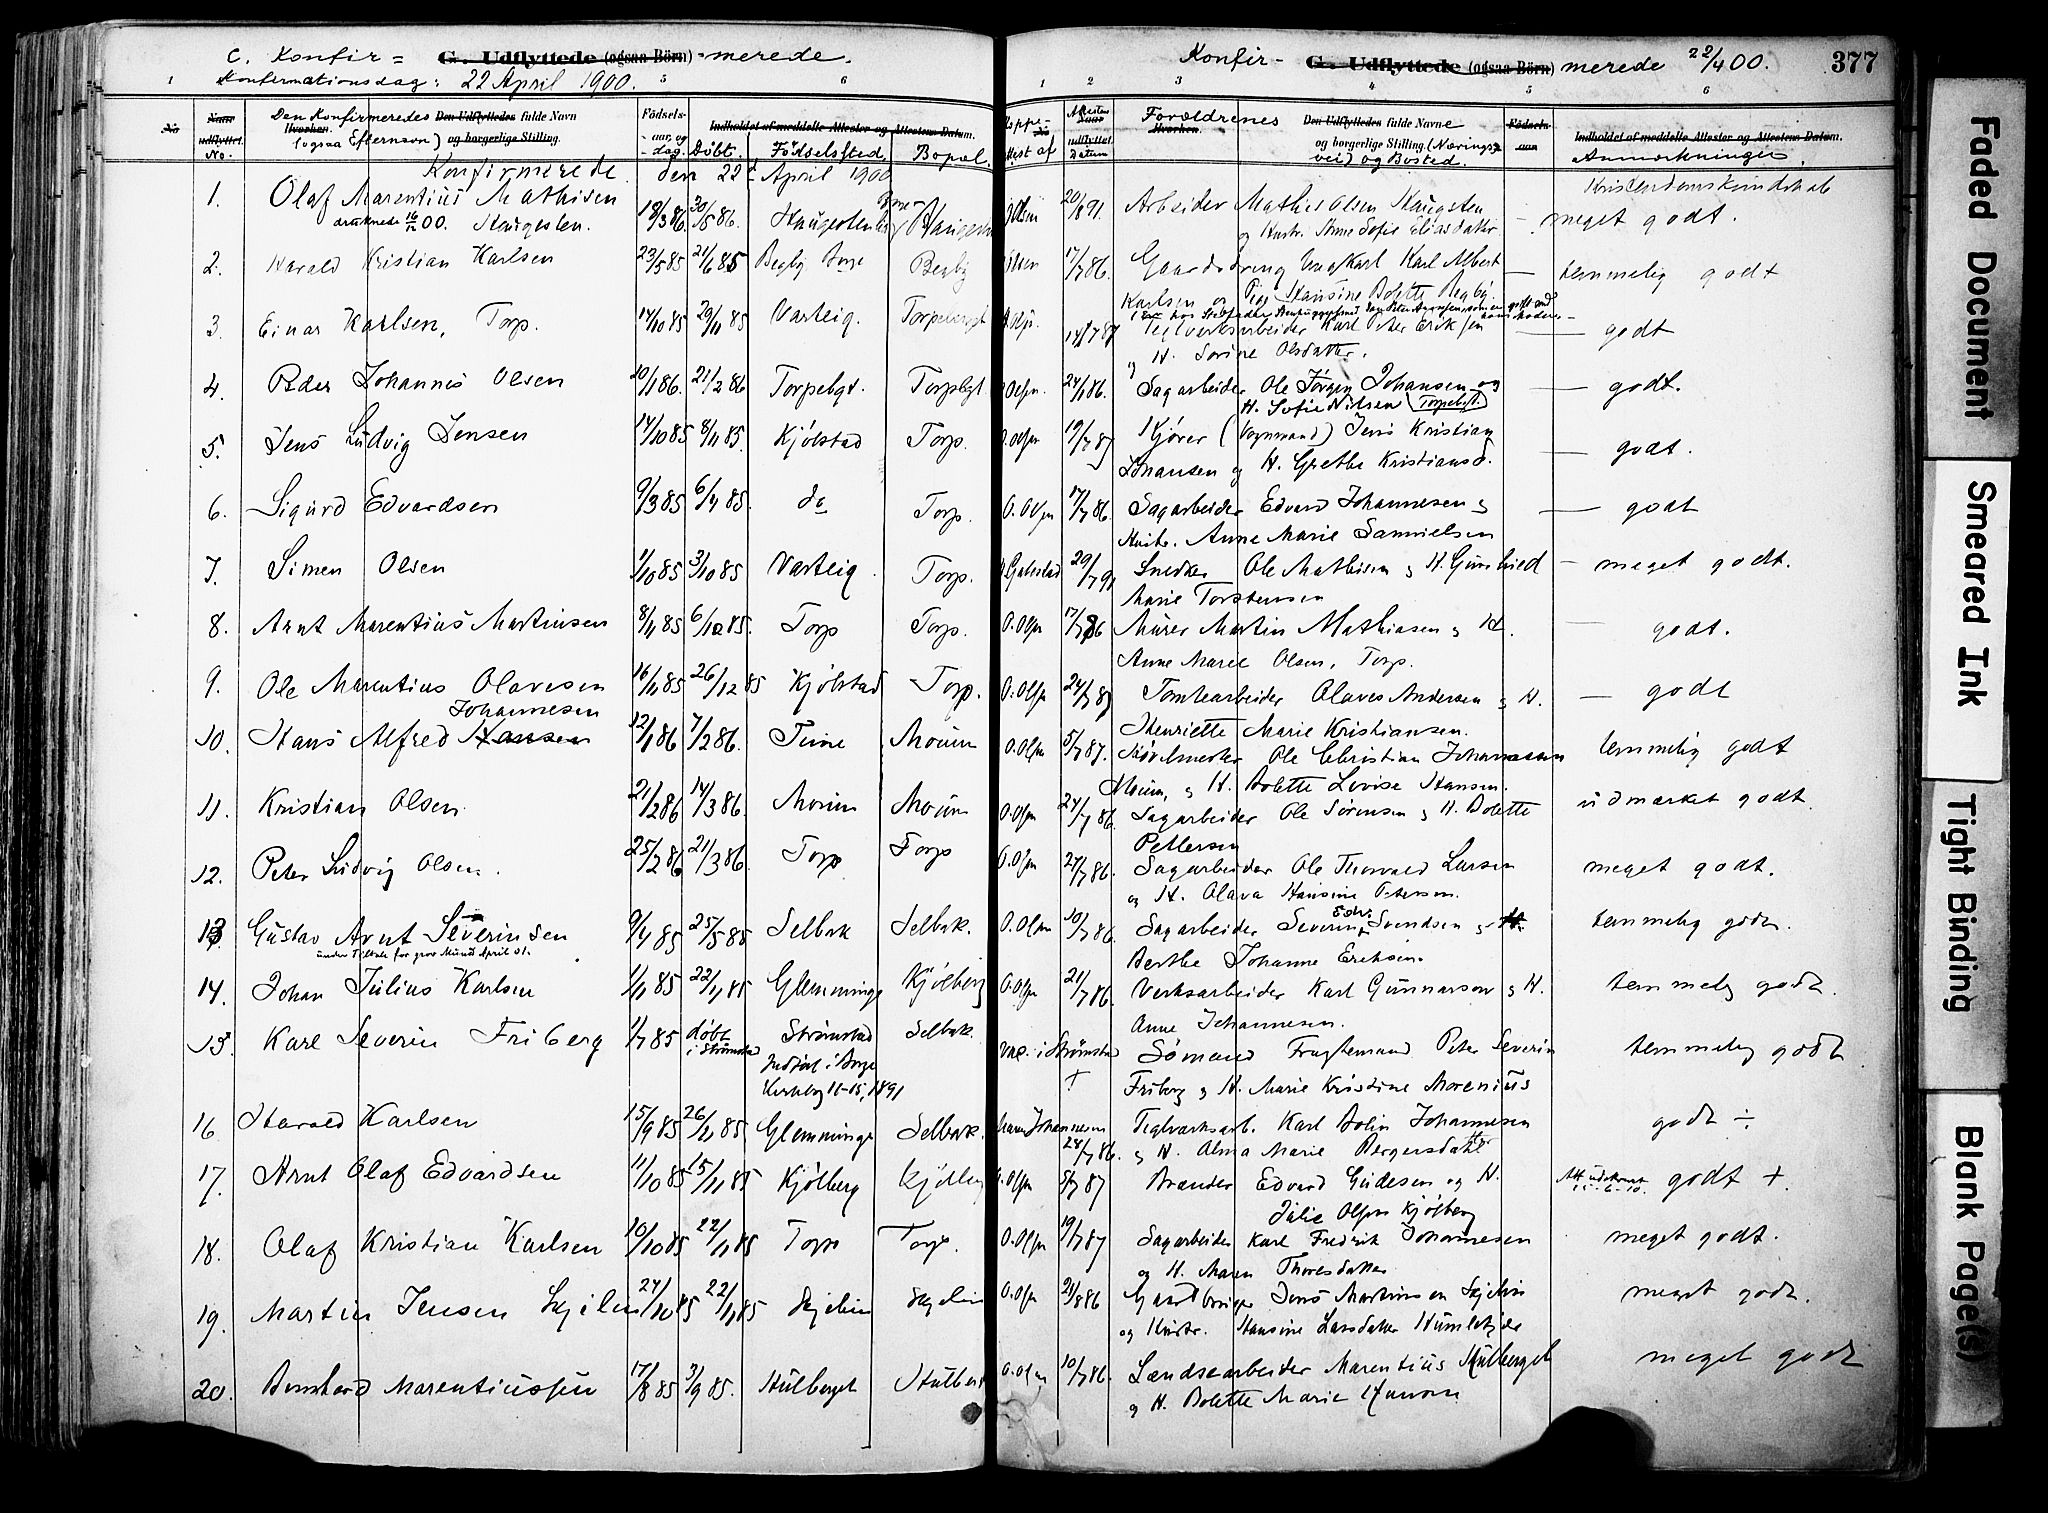 C. Konfir= G. Udflyttede (ogsaa Børn) =merede.
Konfirmationsdag: 22 April 1900.
1 5 6
No Naar udflyttet. No. Den Konfirmeredes Den Udflyttedes fulde Navn (ogsaa Efternavn) og borgerlige Stilling. Fødsels- aar og dag. Døbt. Indholdet af meddelte Attester og Attestens Datum. Fødselssted Bopæl.
Konfirmerede den 22 April 1900
1. Olaf Marentius Mathisen 18/3 86 30/5 86. Haugesten
druknede 00. Haugesten.
2. Harald Kristian Karlsen 23/5 85 21/6 85 Begby Borge Begby
3. Einar Karlsen, Torp. 14/10 85 29/11 85 Varteig.
4. Peder Johannes Olsen 20/1 86. 21/2 86 Torpebgt. Torpbgt.
5. Jens Ludvig Jensen 14/10 85 8/11 85. Kjølstad Torp.
6. Sigurd Edvardsen 9/3 85 6/4 85. do Torp.
7. Simen Olsen 1/10 85 3/10 85 Varteig. Torp.
8. Arnt Marentius Martinsen 8/11 85 6/12 85. Torp Torp.
9. Ole Marentius Olavesen 16/11 85 26/12 85 Kjølstad Torp.
Johannesen
10. Hans Alfred Hansen 12/1 86 7/2 86. Tune Moum
11. Kristian Olsen. 21/2 86 14/3 86. Moum Moum
12. Peter Ludvig Olsen. 25/2 86 21/3 86. Torp Torp
13. Gustav Arnt Severinsen 9/4 85 25/5 85 Selbak Selbak.
under Tiltale for grov April 01.
14. Johan Julius Karlsen 1/11 85 22/11 85 Glemminge Kjølberg
15. Karl Severin Friberg 1/7 85 døbt i Strømstad Strømstad Selbak.
Indført i Borge
Kirkebog 11-15, 1891
16 Harald Karlsen 15/9 85 26/11 85 Glemminge Selbak.
17. Arnt Olaf Edvardsen 11/10 85 15/11 85 Kjølberg Kjølberg
18. Olaf Kristian Karlsen 10/10 85 22/11 85 Torp Torp.
19. Martin Jensen Skjelin 24/10 85 22/11 85 Skjelin Skjelin
20. Bernhard Marentiussen 17/8 85 3/9 85. Hulberget
Konfir- G. Udflyttede (ogsaa Børn) merede 22/4 00. 377
1 2 3 4 5 6
Koppe- Attest af Datum Forældrenes Den Udflyttedes fulde Navne og borgerlige Stilling (Nærings- vei) og Bosted. Fødsels- aar Indholdet af meddelte Attester og Attestens Datum. Anmærkninger.
Kristendomskundskab
20/8 91. Arbeider Mathis Olsen Haugsten - meget godt.
og Hustr. Anne Sofie Eliasdatter
17/7 86. Gaardsdreng Ungkarl Karl Albert — temmelig godt
Karlsen og Pige Hansine Bolette Begby.
Teglverksarbeider Karl Peter Eriksen — godt
og H. Sorine Olsdatter.
24/1 86. Sagarbeider Ole Jørgen Johansen og — godt.
H. Sofie Nilsen (Torpebgt.)
O. Olsen 19/7 87 Kjører (Vognmand) Jens Kristian — godt.
Johansen og H. Grethe Kristiansd.
O. Olsen 17/7 86. Sagarbeider Edvard Johannesen og — godt
Hustr. Anne Marie Samuelsen
29/7 91 Snedker Ole Mathisen og H. Gunhild - meget godt.
Marie Torstensen
O. Olsen 17/7 86 Murer Martin Mathiasen og H. — godt.
Anne Marie Olsen, Torp.
O. Olsen 24/7 87 Tomtearbeider Olaves Andersen og H. — godt
Henriette Marie Kristiansen.
O. Olsen 5/7 87. Ole Christian Johannessen temmelig godt
Moum, og H. Bolette Lovise Hansen.
O. Olsen 24/7 86. Sagarbeider Ole Sørensen og H. Bolette udmærket godt.
Pettersen
O. Olsen 24/7 86. Sagarbeider Ole Thorvald Larsen meget godt.
og H. Olava Hansine Petersen.
O. Olsen 10/7 86. Sagarbeider Severin Edv. Svendsen og H. temmelig godt.
Berthe Johanne Eriksen.
O. Olsen 21/7 86. Verksarbeider Karl Gunnarson og H. temmelig godt.
Anne Johannesen.
vac. i Strømstad Sømand Fragtemand Peter Severin temmelig godt
+ Friberg og H. Marie Kristine Morenius
Johannesen Teglverksarb. Karl Bolin Johannesen godt ÷
24/7 86. og H. Alma Marie Bergersdatter
O. Olsen 8/7 87 Brænder Edvard Gudesen og H. Att. udskrevet 11-6-10. godt +.
Julie Olsen Kjølberg
O. Olsen 19/7 87 Sagarbeider Karl Fredrik Johannesen meget godt.
og H. Maren Thoresdatter
O. Olsen 21/8 86 Gaardbruger Jens Martinsen Skjelin meget godt.
og Hustr. Hansine Larsdatter
O. Olsen 10/7 86. Landsearbeider Marentius Hulberget meget godt
og H. Bolette Marie Hansen
Faded Document
Smeared Ink
Tight Binding
Blank Page(s)